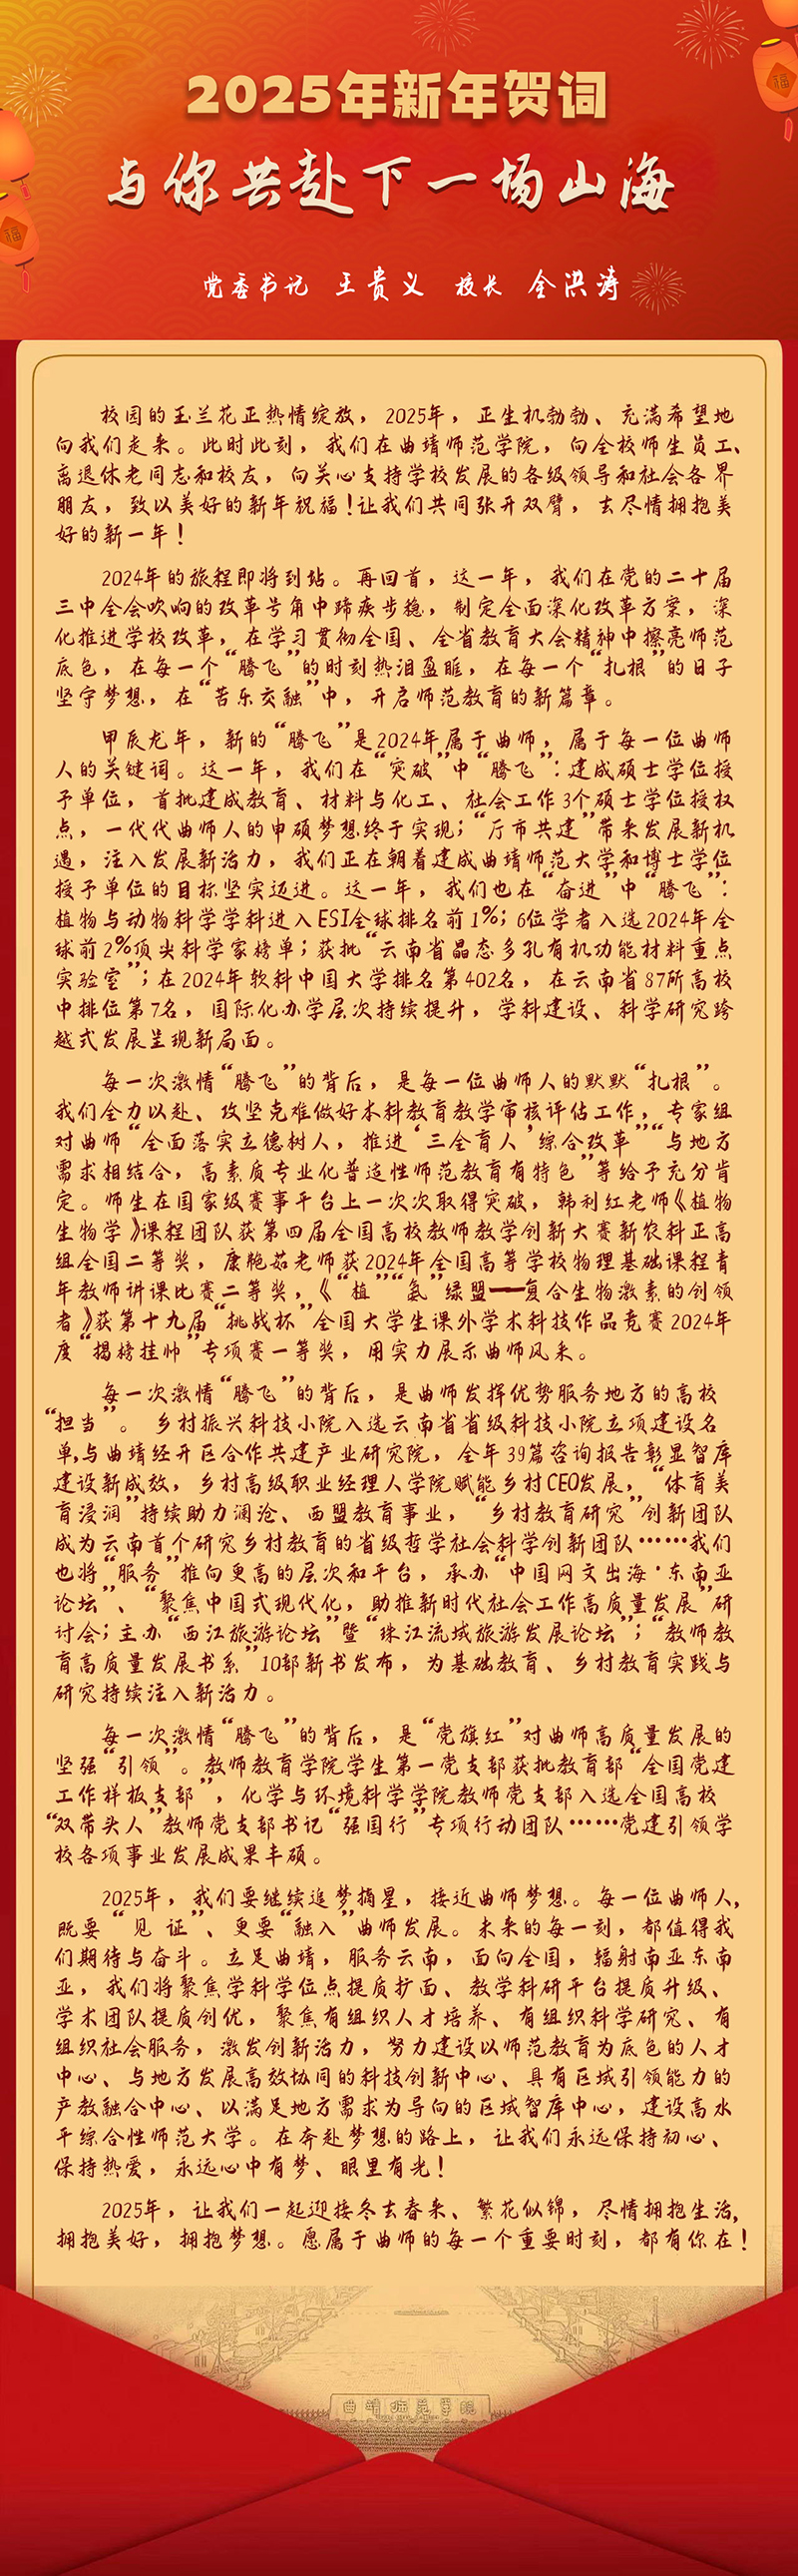 2025年新年贺词
与你共赴下一场山海
党委书记 王贵义 校长 全洪涛
校园的玉兰花正热情绽放，2025年，正生机勃勃、充满希望地
向我们走来。此时此刻，我们在曲靖师范学院，向全校师生员工、
离退休老同志和校友，向关心支持学校发展的各级领导和社会各界
朋友，致以美好的新年祝福！让我们共同张开双臂，去尽情拥抱美
好的新一年！
2024年的旅程即将到站。再回首，这一年，我们在党的二十届
三中全会吹响的改革号角中蹄疾步稳，制定全面深化改革方案，深
化推进学校改革，在学习贯彻全国、全省教育大会精神中擦亮师范
底色，在每一个“腾飞”的时刻热泪盈眶，在每一个“扎根”的日子
坚守梦想，在“苦乐交融”中，开启师范教育的新篇章。
甲辰龙年，新的“腾飞”是2024年属于曲师，属于每一位曲师
人的关键词。这一年，我们在“突破”中“腾飞”：建成硕士学位授
予单位，首批建成教育、材料与化工、社会工作3个硕士学位授权
点，一代代曲师人的申硕梦想终于实现；“厅市共建”带来发展新机
遇，注入发展新活力，我们正在朝着建成曲靖师范大学和博士学位
授予单位的目标坚实迈进。这一年，我们也在“奋进”中“腾飞”：
植物与动物科学学科进入ESI全球排名前1%；6位学者入选2024年全
球前2%顶尖科学家榜单；获批“云南省晶态多孔有机功能材料重点
实验室”；在2024年软科中国大学排名第402名，在云南省87所高校
中排位第7名，国际化办学层次持续提升，学科建设、科学研究跨
越式发展呈现新局面。
每一次激情“腾飞”的背后，是每一位曲师人的默默“扎根”。
我们全力以赴、攻坚克难做好本科教育教学审核评估工作，专家组
对曲师“全面落实立德树人，推进‘三全育人’综合改革”“与地方
需求相结合，高素质专业化普适性师范教育有特色”等给予充分肯
定。师生在国家级赛事平台上一次次取得突破，韩利红老师《植物
生物学》课程团队获第四届全国高校教师教学创新大赛新农科正高
组全国二等奖，康艳茹老师获2024年全国高等学校物理基础课程青
年教师讲课比赛二等奖，《“植”“氨”绿盟——复合生物激素的创领
者》获第十九届“挑战杯”全国大学生课外学术科技作品竞赛2024年
度“揭榜挂帅”专项赛一等奖，用实力展示曲师风采。
每一次激情“腾飞”的背后，是曲师发挥优势服务地方的高校
“担当”。乡村振兴科技小院入选云南省省级科技小院立项建设名
单,与曲靖经开区合作共建产业研究院，全年39篇咨询报告彰显智库
建设新成效，乡村高级职业经理人学院赋能乡村CEO发展，“体育美
育浸润”持续助力澜沧、西盟教育事业，“乡村教育研究”创新团队
成为云南首个研究乡村教育的省级哲学社会科学创新团队……我们
也将“服务”推向更高的层次和平台，承办“中国网文出海·东南亚
论坛”、“聚焦中国式现代化，助推新时代社会工作高质量发展”研
讨会；主办“西江旅游论坛”暨“珠江流域旅游发展论坛”；“教师教
育高质量发展书系”10部新书发布，为基础教育、乡村教育实践与
研究持续注入新活力。
每一次激情“腾飞”的背后，是“党旗红”对曲师高质量发展的
坚强“引领”。教师教育学院学生第一党支部获批教育部“全国党建
工作样板支部”，化学与环境科学学院教师党支部入选全国高校
“双带头人”教师党支部书记“强国行”专项行动团队……党建引领学
校各项事业发展成果丰硕。
2025年，我们要继续追梦摘星，接近曲师梦想。每一位曲师人，
既要“见 证”、更要“融入”曲师发展。未来的每一刻，都值得我
们期待与奋斗。立足曲靖，服务云南，面向全国，辐射南亚东南
亚，我们将聚焦学科学位点提质扩面、教学科研平台提质升级、
学术团队提质创优，聚焦有组织人才培养、有组织科学研究、有
组织社会服务，激发创新活力，努力建设以师范教育为底色的人才
中心、与地方发展高效协同的科技创新中心、具有区域引领能力的
产教融合中心、以满足地方需求为导向的区域智库中心，建设高水
平综合性师范大学。在奔赴梦想的路上，让我们永远保持初心、
保持热爱，永远心中有梦、眼里有光！
2025年，让我们一起迎接冬去春来、繁花似锦，尽情拥抱生活，
拥抱美好，拥抱梦想。愿属于曲师的每一个重要时刻，都有你在！
曲靖师范学院
福
福